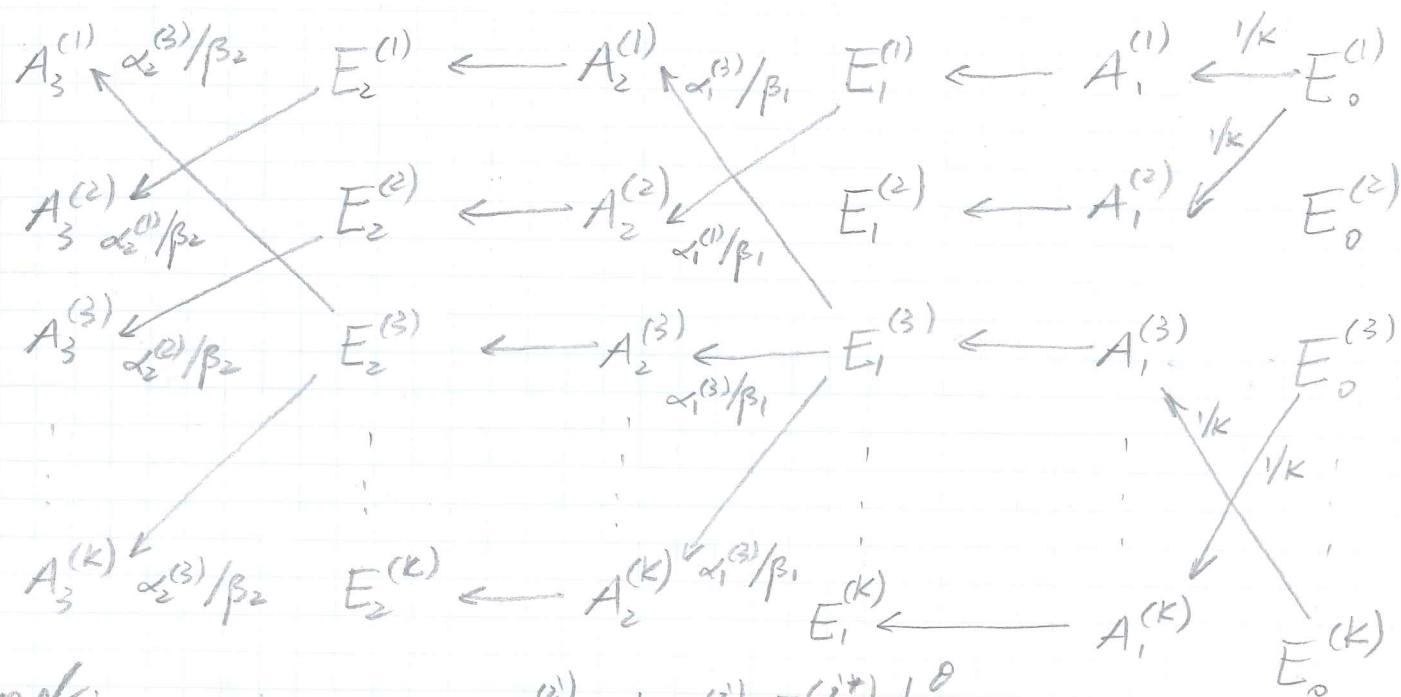 A_3^{(1)} α_2^{(3)}/β_2 E_2^{(1)} ← A_2^{(1)} α_1^{(3)}/β_1 E_1^{(1)} ← A_1^{(1)} 1/K ← E_0^{(1)}
1/K
A_3^{(2)} α_2^{(1)}/β_2 E_2^{(2)} ← A_2^{(2)} α_1^{(1)}/β_1 E_1^{(2)} ← A_1^{(2)} E_0^{(2)}
A_3^{(3)} α_2^{(2)}/β_2 E_2^{(3)} ← A_2^{(3)} ← α_1^{(3)}/β_1 E_1^{(3)} ← A_1^{(3)} E_0^{(3)}
1/K 1/K
A_3^{(K)} α_2^{(3)}/β_2 E_2^{(K)} ← A_2^{(K)} α_1^{(3)}/β_1 E_1^{(K)} ← A_1^{(K)} E_0^{(K)}